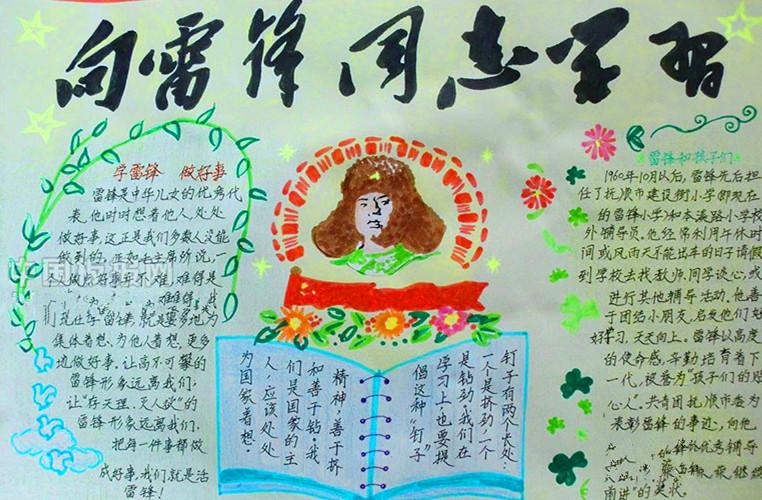 向雷锋同志学习
学雷锋 做好事
雷锋是中华儿女的优秀代
表,他时时想着他人,处处
做好事,这正是我们多数人没能
做到的。正如毛主席所说,一
人做点好事并不难,难得是
难难得,我
们现在学雷锋,就是要多地为
集体着想、为他人着想。更多
地做好事。让高不可攀的
雷锋形象远离我们;
让“存天理,灭人欲”的
雷锋形象远离我们。
把每一件事都做
成好事,我们就是活
雷锋!
钉子有两个长处:
一个是挤劲,一个
是钻劲,我们在
学习上,也要提
倡这种“钉子”
精神,善于挤
和善于钻。我
们是国家的主
人,应该处处
为国家着想。
雷锋和孩子们
1960年10月以后,雷锋先后担
任了抚顺市建设街小学(即现在
的雷锋小学)和本溪路小学校
外辅导员。他经常利用午休时
间或风雨天不能出车的日子请假
到学校去找教师、同学谈心,或
进行其他辅导活动。他善
于团结小朋友,启发他们
好好学习,天天向上。雷锋以高度
的使命感,辛勤培育着下
一代,被誉为“孩子们的贴
心人”。共青团抚顺市委为
表彰雷锋的事迹,向他
优秀辅导
继续
雨讲”的要求